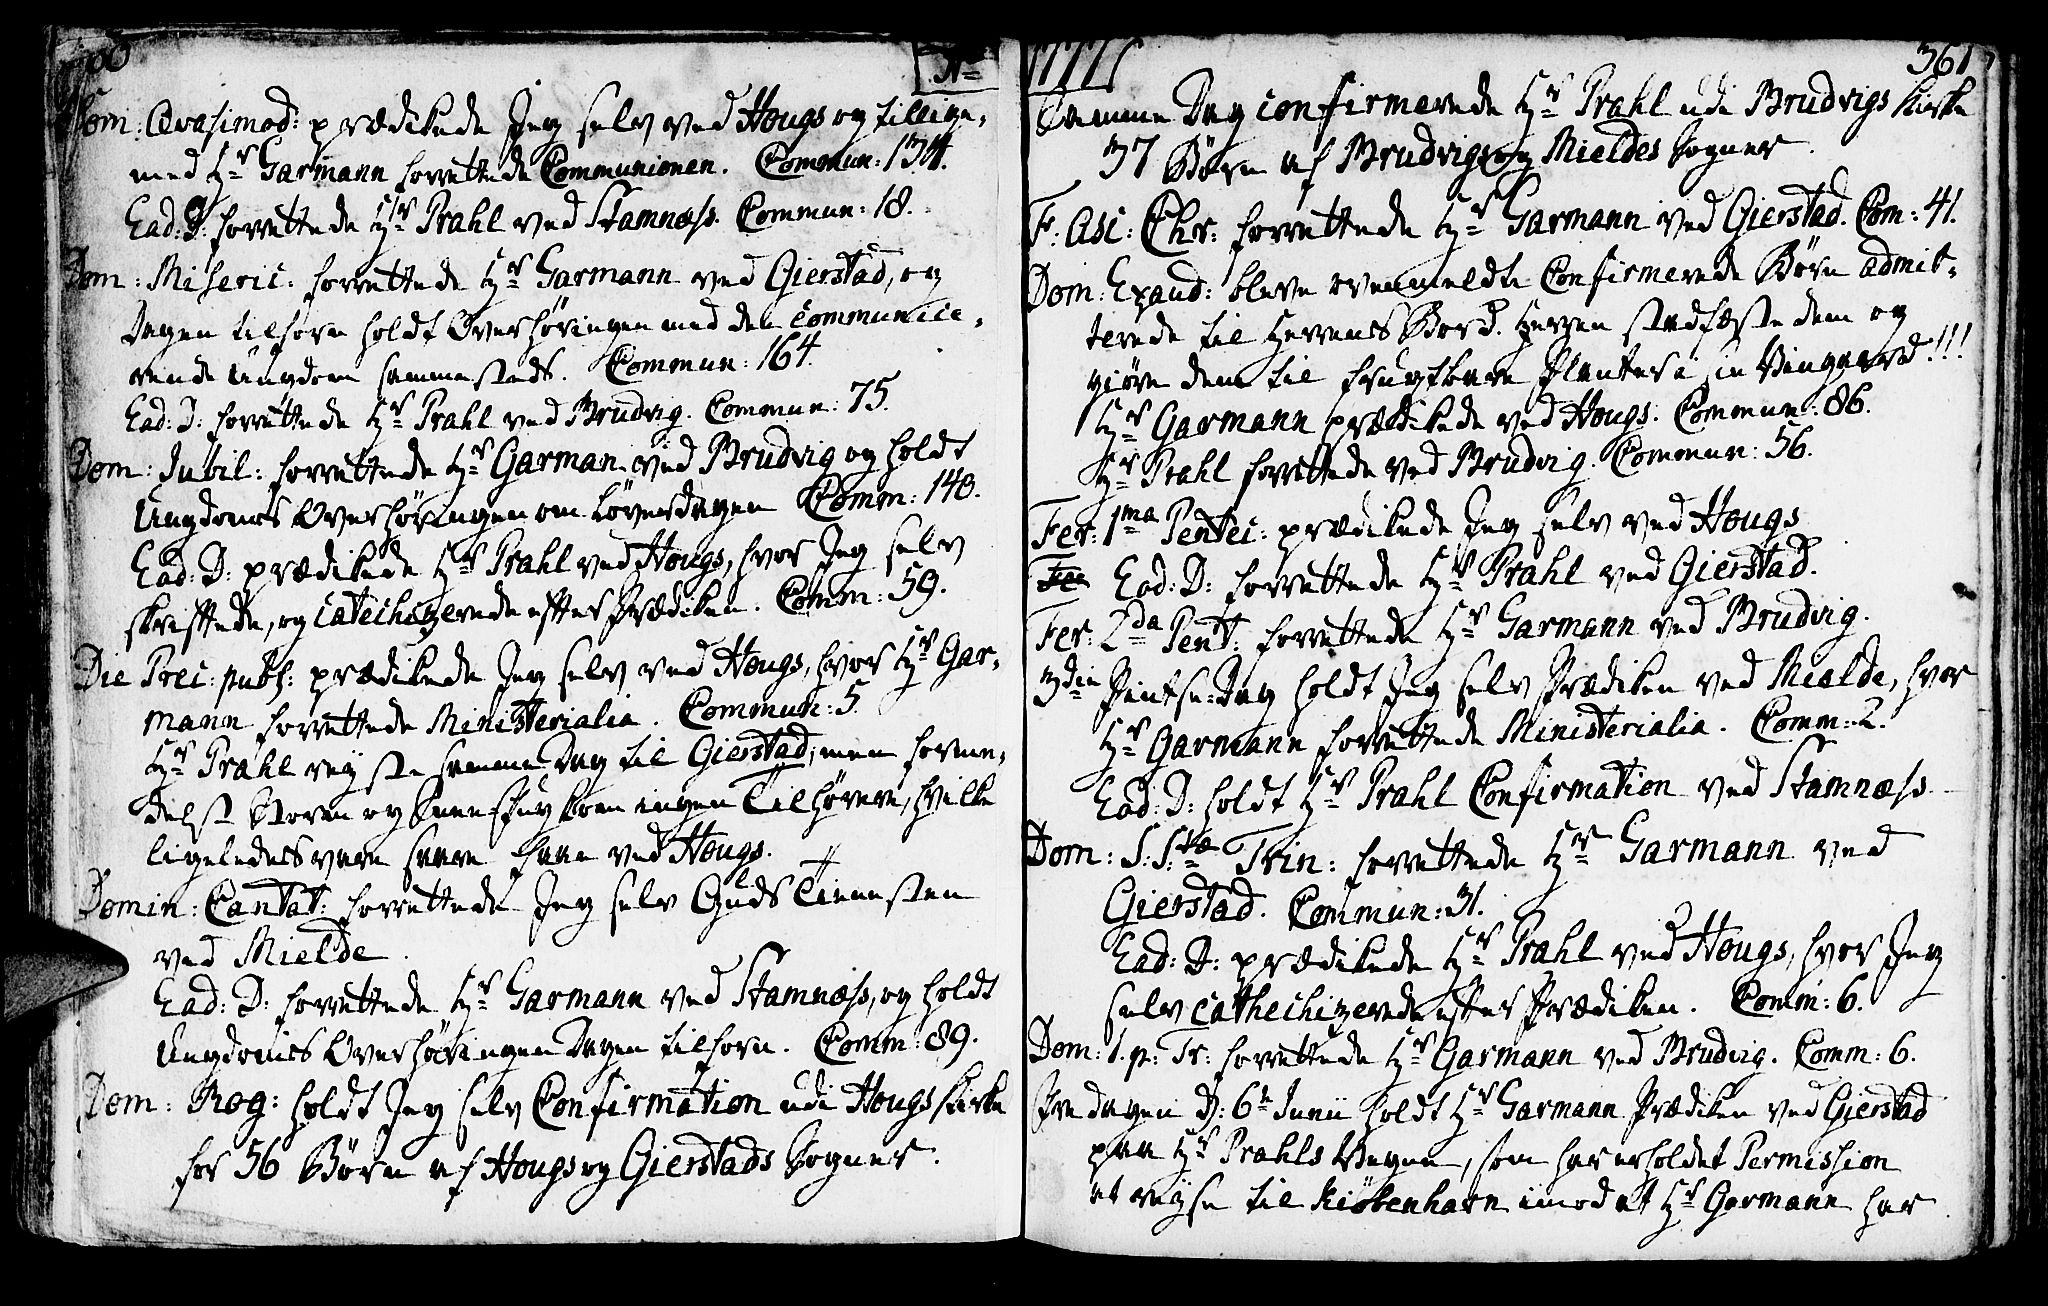 Aº
Dom: Qvasimod: prædikede Jeg selv ved Hougs og tillige,
med Hr Garmann forrettede Communionen. Commun: 134.
Ead: D: forrettede Hr Prahl ved Stamnæss. Commun: 18.
Dom: Miseric: forrettede Hr Garmann ved Gierstad, og
Dagen tilforn holdt Overhøringen med den communice,
rende Ungdom sammesteds. Commun: 164.
Ead: D: forrettede Hr Prahl ved Brudvig. Commun: 75.
Dom: Jubil: forrettede Hr Garman ved Brudvig og holdt
Ungdomes Overhøringen om Løverdagen Comm: 140.
Ead: D: prædikede Hr Prahl ved Hougs, hvor Jeg selv
skriftede, og catechizerede efter Prædiken. Comm: 59.
Die Prec: publ: prædikede Jeg selv ved Hougs, hvor Hr Gar,
mann forrettede Ministerialia. Commun: 5.
Hr Prahl reyste samme Dag til Gierstad, men forme,
delst Storm og Sneefog kom ingen Tilhørere, hvilke
ligeledes vare saare faae ved Hougs.
Domin: Cantat: forrettede Jeg selv Guds Tienesten
ved Mielde.
Ead: D: forrettede Hr Garmann ved Stamnæss, og holdt
Ungdomes Overhøringen Dagen tilforn. Comm: 89.
Dom: Rog: holdt Jeg selv Confirmation udi Hougs Kirke
for 56 Børn af Hougs og Gierstads Sogner.
1777
361
Samme Dag confirmerede Hr Prahl udi Brudvigs Kirke
37 Børn af Brudvigs og Mieldes Sogner.
F: Asc: Chr: forrettede Hr Garmann ved Gierstad. Com: 41.
Dom: Exaud: bleve ovenmeldte Confirmerede Børn admit,
terede til Herrens Bord. Herren stadfæste dem og
giøre dem til frugtbare Planter i sin Viingaard!!!
Hr Garmann prædikede ved Hougs. Commun: 86.
Hr Prahl forrettede ved Brudvig. Commun: 56.
Fer: 1ma Pentec: prædikede Jeg selv ved Hougs
Fer Ead: D: forrettede Hr Prahl ved Gierstad.
Fer: 2da Pent: forrettede Hr Garmann ved Brudvig.
3die Pintse-Dag holdt Jeg selv Prædiken ved Mielde, hvor
Hr Garmann forrettede Ministerialia. Comm: 2.
Ead: D: holdt Hr Prahl Confirmation ved Stamnæss
Dom: S:S:tæ Trin: forrettede Hr Garmann ved
Gierstad. Commun: 31.
Ead: D: prædikede Hr Prahl ved Hougs, hvor Jeg
selv cathechizerede efter Prædiken. Comm: 6.
Dom: 1. p: Tr: forrettede Hr Garmann ved Brudvig. Comm: 6.
Fredagen D: 6te Junii holdt Hr Garmann Prædiken ved Gierstad
paa Hr Prahls Vegne, som har erholdet Permission
at reyse til Kiøbenhavn imod at Hr Garmann har